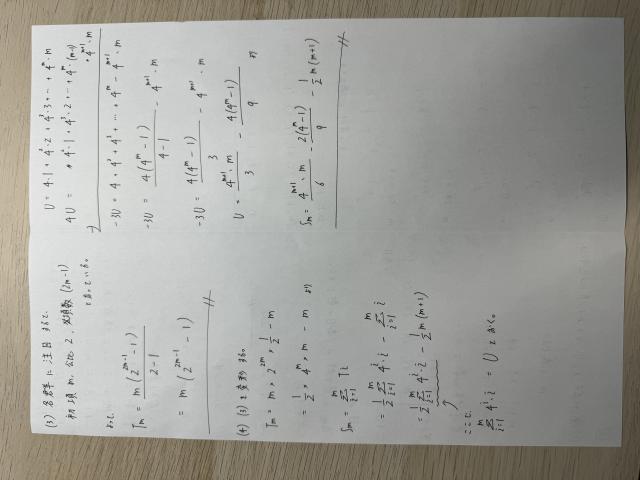 (3) 各群に注目すると、
初項 m, 公比 2, 項数 (2m-1)
となっている。
よって、
Tm = m(2^{2m-1} - 1) / (2-1)
= m(2^{2m-1} - 1)
(4) (3)を変形する。
Tm = m × 2^{2m} × 1/2 - m
= 1/2 × 4^m × m - m より
Sm = Σ_{i=1}^{m} Ti
= 1/2 Σ_{i=1}^{m} 4^i・i - Σ_{i=1}^{m} i
= 1/2 Σ_{i=1}^{m} 4^i・i - 1/2 m(m+1)
ここで、
Σ_{i=1}^{m} 4^i・i = U とおく。
U = 4・1 + 4^2・2 + 4^3・3 + … + 4^m・m
4U = 4^2・1 + 4^3・2 + … + 4^m・(m-1) + 4^{m+1}・m
-3U = 4 + 4^2 + 4^3 + … + 4^m - 4^{m+1}・m
-3U = 4(4^m - 1) / (4-1) - 4^{m+1}・m
-3U = 4(4^m - 1) / 3 - 4^{m+1}・m
U = 4^{m+1}・m / 3 - 4(4^m - 1) / 9 より
Sm = 4^{m+1}・m / 6 - 2(4^m - 1) / 9 - 1/2 m(m+1)